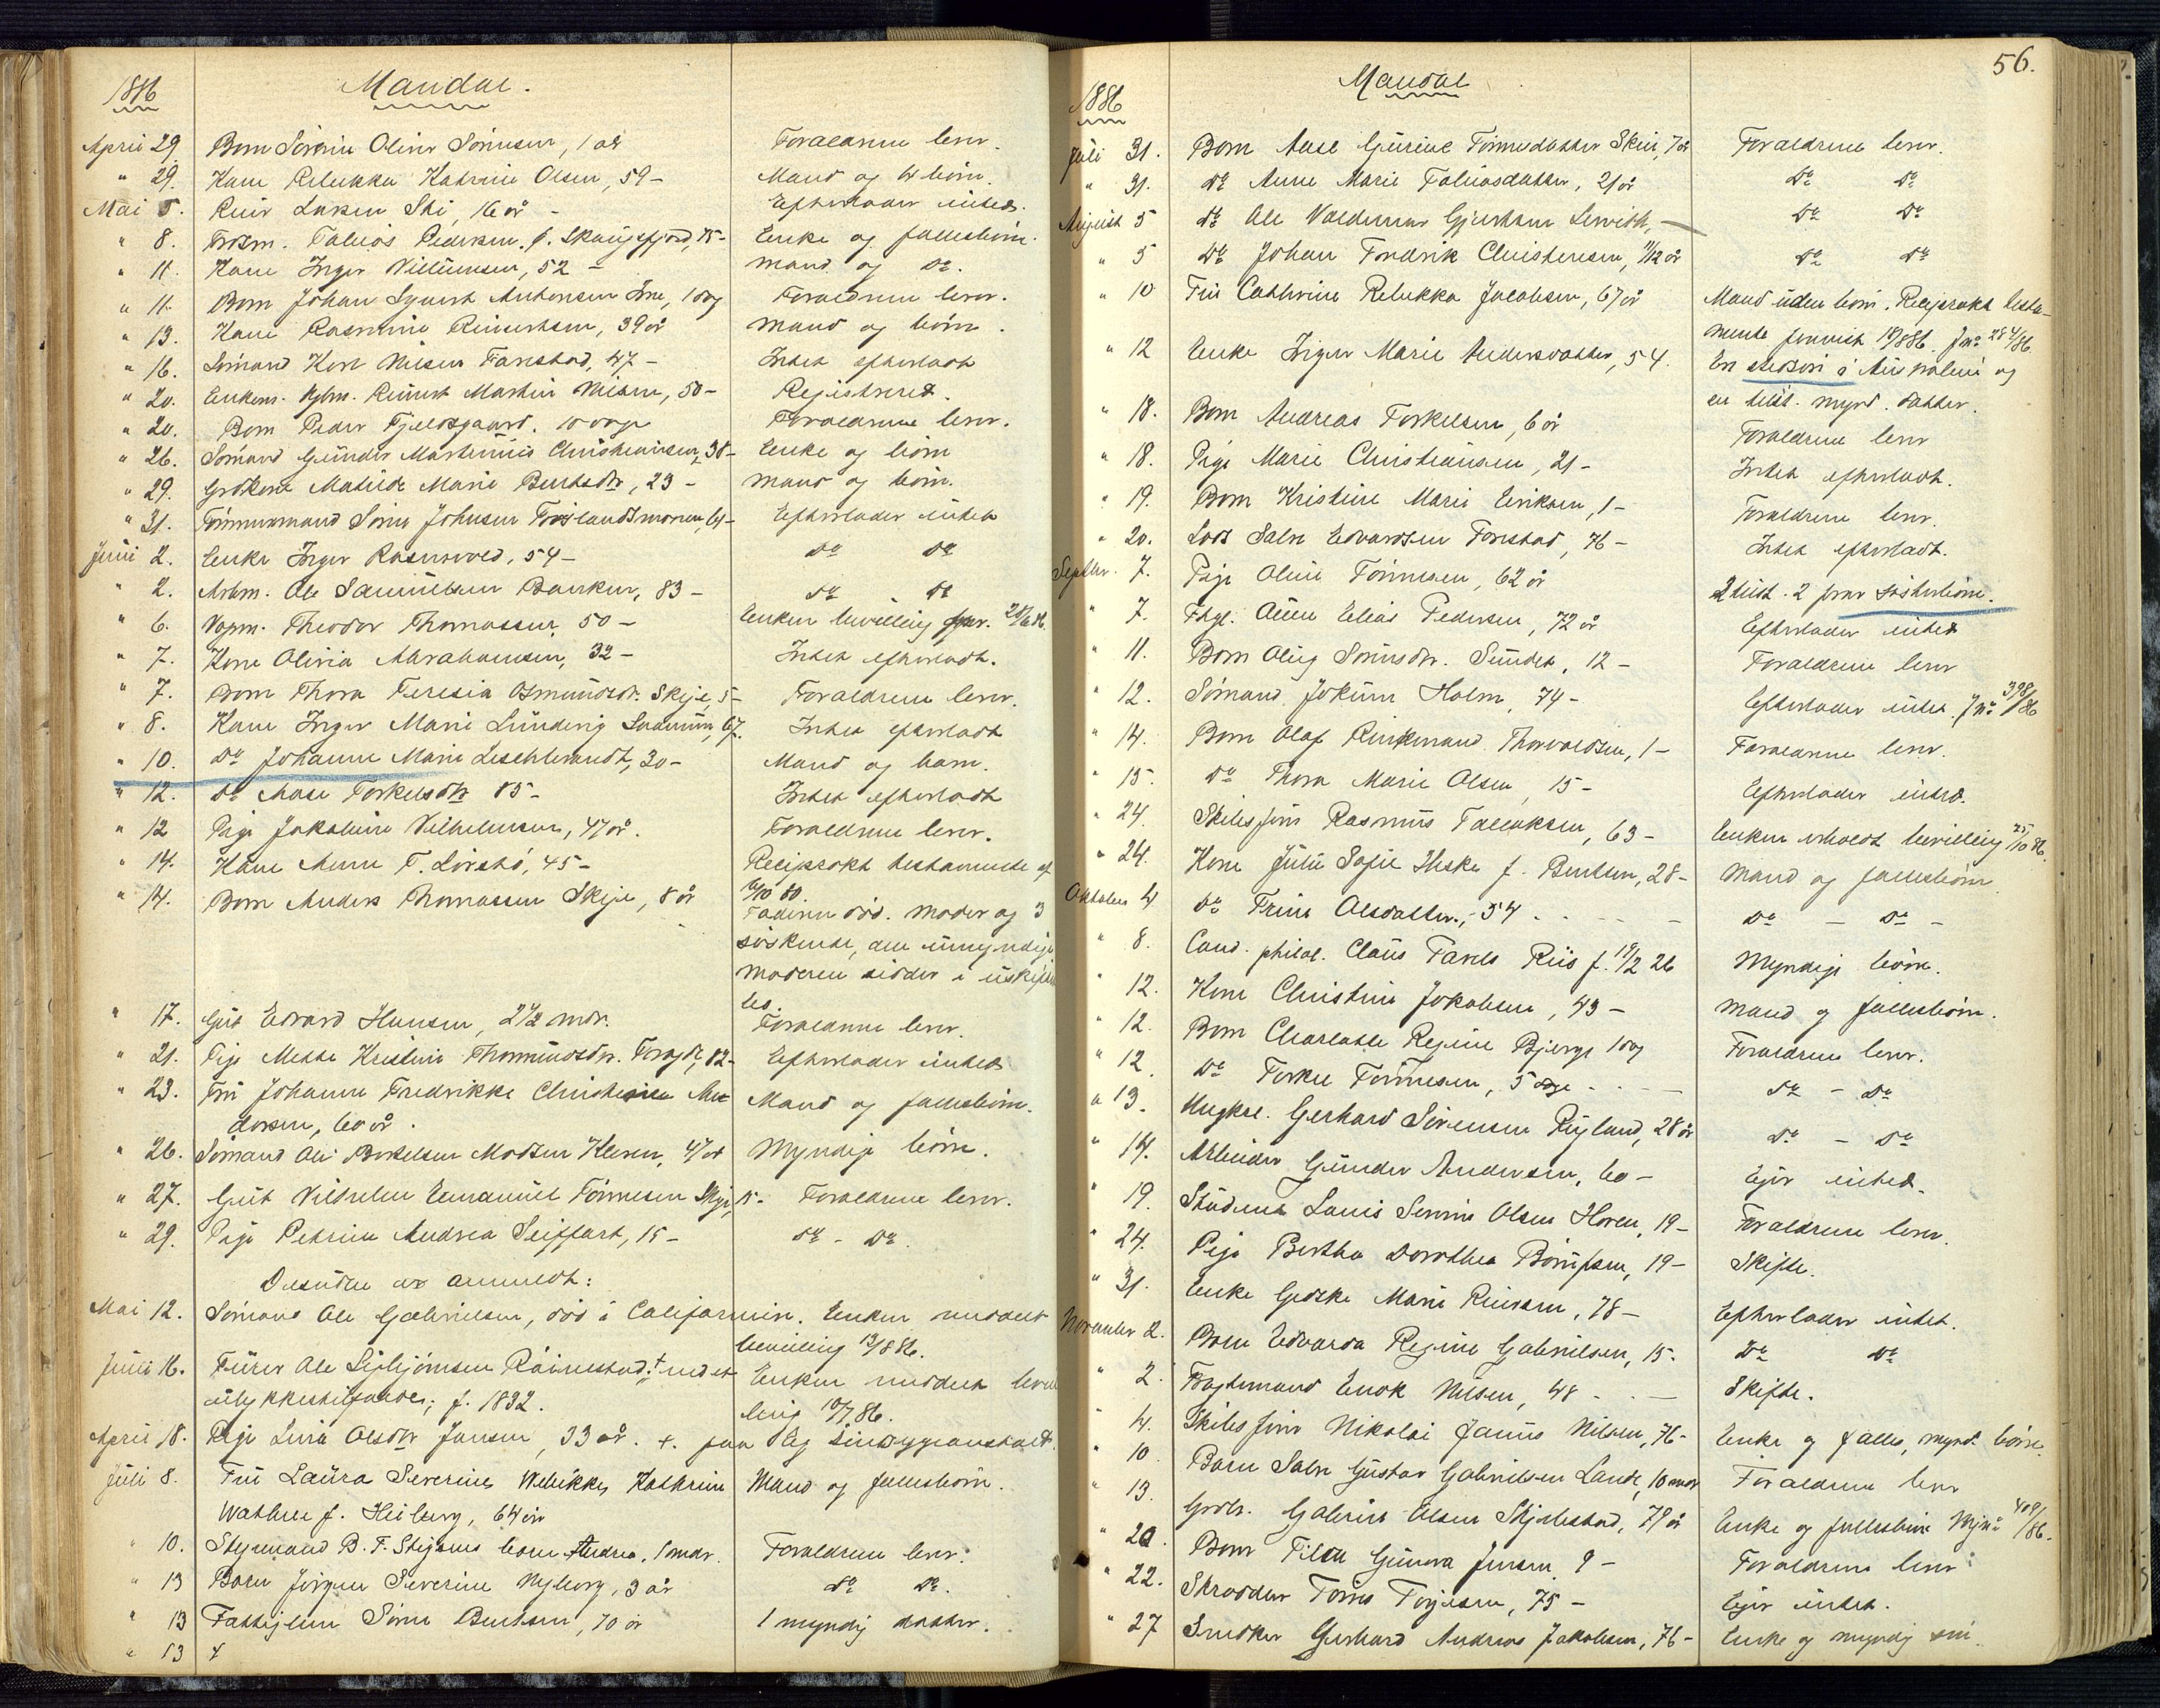 1886
Mandal.
April 29. Barn Sørine Oline Sørensen, 1 år Forældrene lever.
" 29. Kone Rebekka Katrine Olsen, 59 - Mand og 4 børn.
Mai 5. 16 år - Efterlader intet.
" 8. Pedersen. f. 75 - Enke og fællesbörn.
" 11. Kone Inger Villumsen, 52 - Mand og Do.
" 11. Barn Johan Sigvart Antonsen 1 dag Forældrene lever.
" 13. Kone Rasmine Reinertsen, 39 år Mand og börn.
" 16. Sömand Karl Nilsen Farestad, 47 - Intet efterladt
" 20. Enkem. Reinert Martin Nilsen, 50 - Registreret.
" 20. Barn Peder Fjeldsgaard. 10 dage Forældrene lever.
" 26. Sömand Gunder Martinius Christiansen, 38 - Enke og börn
" 29. Grdkone Matilde Marie Bentsdtr, 23 - Mand og börn.
" 31. Tömmermand Sören Johnsen 64 - Efterlader intet
Juni 2. Enke Inger Rosenvold, 54 - Do Do
" 2. Arbm. Ole Samuelsen Banken, 83 - Do Do
" 6. Vognm. Theodor Thomassen, 50 - Enken bevilling
" 7. Kone Olivia Abrahamsen, 32 - Intet efterladt.
" 7. Barn Thora Teresia Osmundsdtr. Skeje, 5 - Forældrene lever.
" 8. Kone Inger Marie Lundevig 67. Intet efterladt
" 10. Do Johanne Marie Leschbrandt, 30 - Mand og barn.
" 12. Do Aase Torkelsdtr 85 - Intet efterladt
" 12 Pige Jakobine Vilhelmsen, 47 år. Forældrene lever.
" 14. Kone Anne T. 45 - Reciprokt testamente af
" 14. Barn Anders Thomassen Skeje, 8 år 80.
Faderen död. Moder og 3
söskende, alle umyndige
Moderen sidder i uskiftet
bo.
" 17. Gut Edvard Hansen, 2 1/2 mdr. Forældrene lever.
" 21. Pige Mette Kristine Thormundsdtr. 82 - Efterlader intet
" 23. Fru Johanne Fredrikke Christense An-
dersen, 60 år. Mand og fællesbörn.
" 26. Sömand Ole Madsen 47 år Myndige börn.
" 27. Gut Vilhelm Emanuel Tönnesen Skeje, 15 - Forældrene lever.
" 29. Pige Petrine Andrea Seiffart, 15 - Do - Do
Desuden er anmeldt:
Mai 12. Sömand Ole Gabrielsen, död i Californien. Enken meddelt
bevilling 13/8 86.
Juni 16. Ole Röinestad. † ved et Enken meddelt bevil
ulykkestilfælde; f. 1832. ling 10/7 86.
April 18. Pige Lina Olsdtr Jansen, 33 år. †. paa Eg Sindsygeanstalt.
Juli 8. Fru Laura Severine Wibikke Kathrine Mand og fællesbörn.
Wattne f. Heiberg, 64 år
" 10. Styrmand B. T. Stigens barn Andrea, 1 mdr. Forældrene lever.
" 13 Barn Jörgen Severin Nyborg, 3 år Do Do.
" 13 Fattiglem Sören Bentsen, 70 år 1 myndig datter.
" 13
56.
1886
Mandal
Juli 31. Barn Aase Gurine Tönnesdatter Skeie, 7 år Forældrene lever.
" 31. Do Anne Marie Tobiasdatter, 21 år Do Do
August 5 Do Ole Valdemar Gjertsen - Do Do
" 5 Do Johan Fredrik Christensen, 1/12 år Do Do
" 10 Fru Cathrine Rebekka Jacobsen, 67 år Mand uden börn. Reciprokt testa-
mente Jno 284/86
" 12 Enke Inger Marie Andersdatter, 54. En stedsön i Australien og
en mynd. datter.
" 18. Barn Andreas Torkelsen, 6 år Forældrene lever
" 18. Pige Marie Christiansen, 21 - Intet efterladt.
" 19. Barn Kristine Marie Eriksen, 1 - Forældrene lever.
" 20. Lods Salve Edvardsen Farestad, 76 - Intet efterladt.
Septbr. 7. Pige Oline Tönnesen, 62 år 2 söskd. 2 søsterbörn.
" 7. Ftgl. Anne Elias Pedersen, 72 år Efterlader intet
" 11. Barn Oleug Sörensdtr. Sundet, 12 - Forældrene lever
" 12. Sömand Jokum Holm, 74 - Efterlader intet. Jno 398/86
" 14. Barn Olaf Thorvaldsen, 1 - Forældrene lever.
" 15. Do Thora Marie Olsen, 15 - Efterlader intet.
" 24. Skibsförer Rasmus Tallaksen, 63 - Enken erholdt bevilling 25/10 86.
" 24. Kone Julie Sofie f. Bentsen, 28 - Mand og fællesbörn
Oktober 4 Do Trine Olsdatter, 54 - Do - Do -
" 8. Cand. philol. Claus Riis f. 19/2 26 Myndige börn.
" 12. Kone Christine Jakobsen, 43 - Mand og fællesbörn.
" 12. Barn Charlotte Regine Bjerge 1 dag Forældrene lever.
" 12 Do Torkel Tönnesen, 5 dage - Do - Do
" 13. Ungkrl. Gerhard Sörensen Rugland, 28 år Do - Do
" 14. Arbeider Gunder Andersen, 60 - Ejer intet.
" 19. Student Louis Severin Olsen Hoven, 19 - Forældrene lever.
" 24. Pige Bertha Dorothea 19 - Skifte.
" 31. Enke Gjedske Marie 78 - Efterlader intet.
November 2. Barn Edvarda Regine Gabrielsen, 15. Do Do
" 2. Fragtemand Enok Nilsen, 48 - Skifte.
" 4. Skibsförer Nikolai Janus Nilsen, 76 - Enke og fælles, mynd. börn
" 10 Barn Salve Gustav Gabrielsen Lande, 10 mdr Forældrene lever
" 13. Grdbr. Gabriel Olsen Skjebstad, 79 år Enke og fællesbörn 409/86.
" 20. Barn Tilda Gunora Jensen, 9 - Forældrene lever
" 22. Skrædder Tönnes Torjesen, 75 - Ejer intet.
" 27 Snedker Gerhard Andreas Jakobsen, 76 - Enke og myndig sön